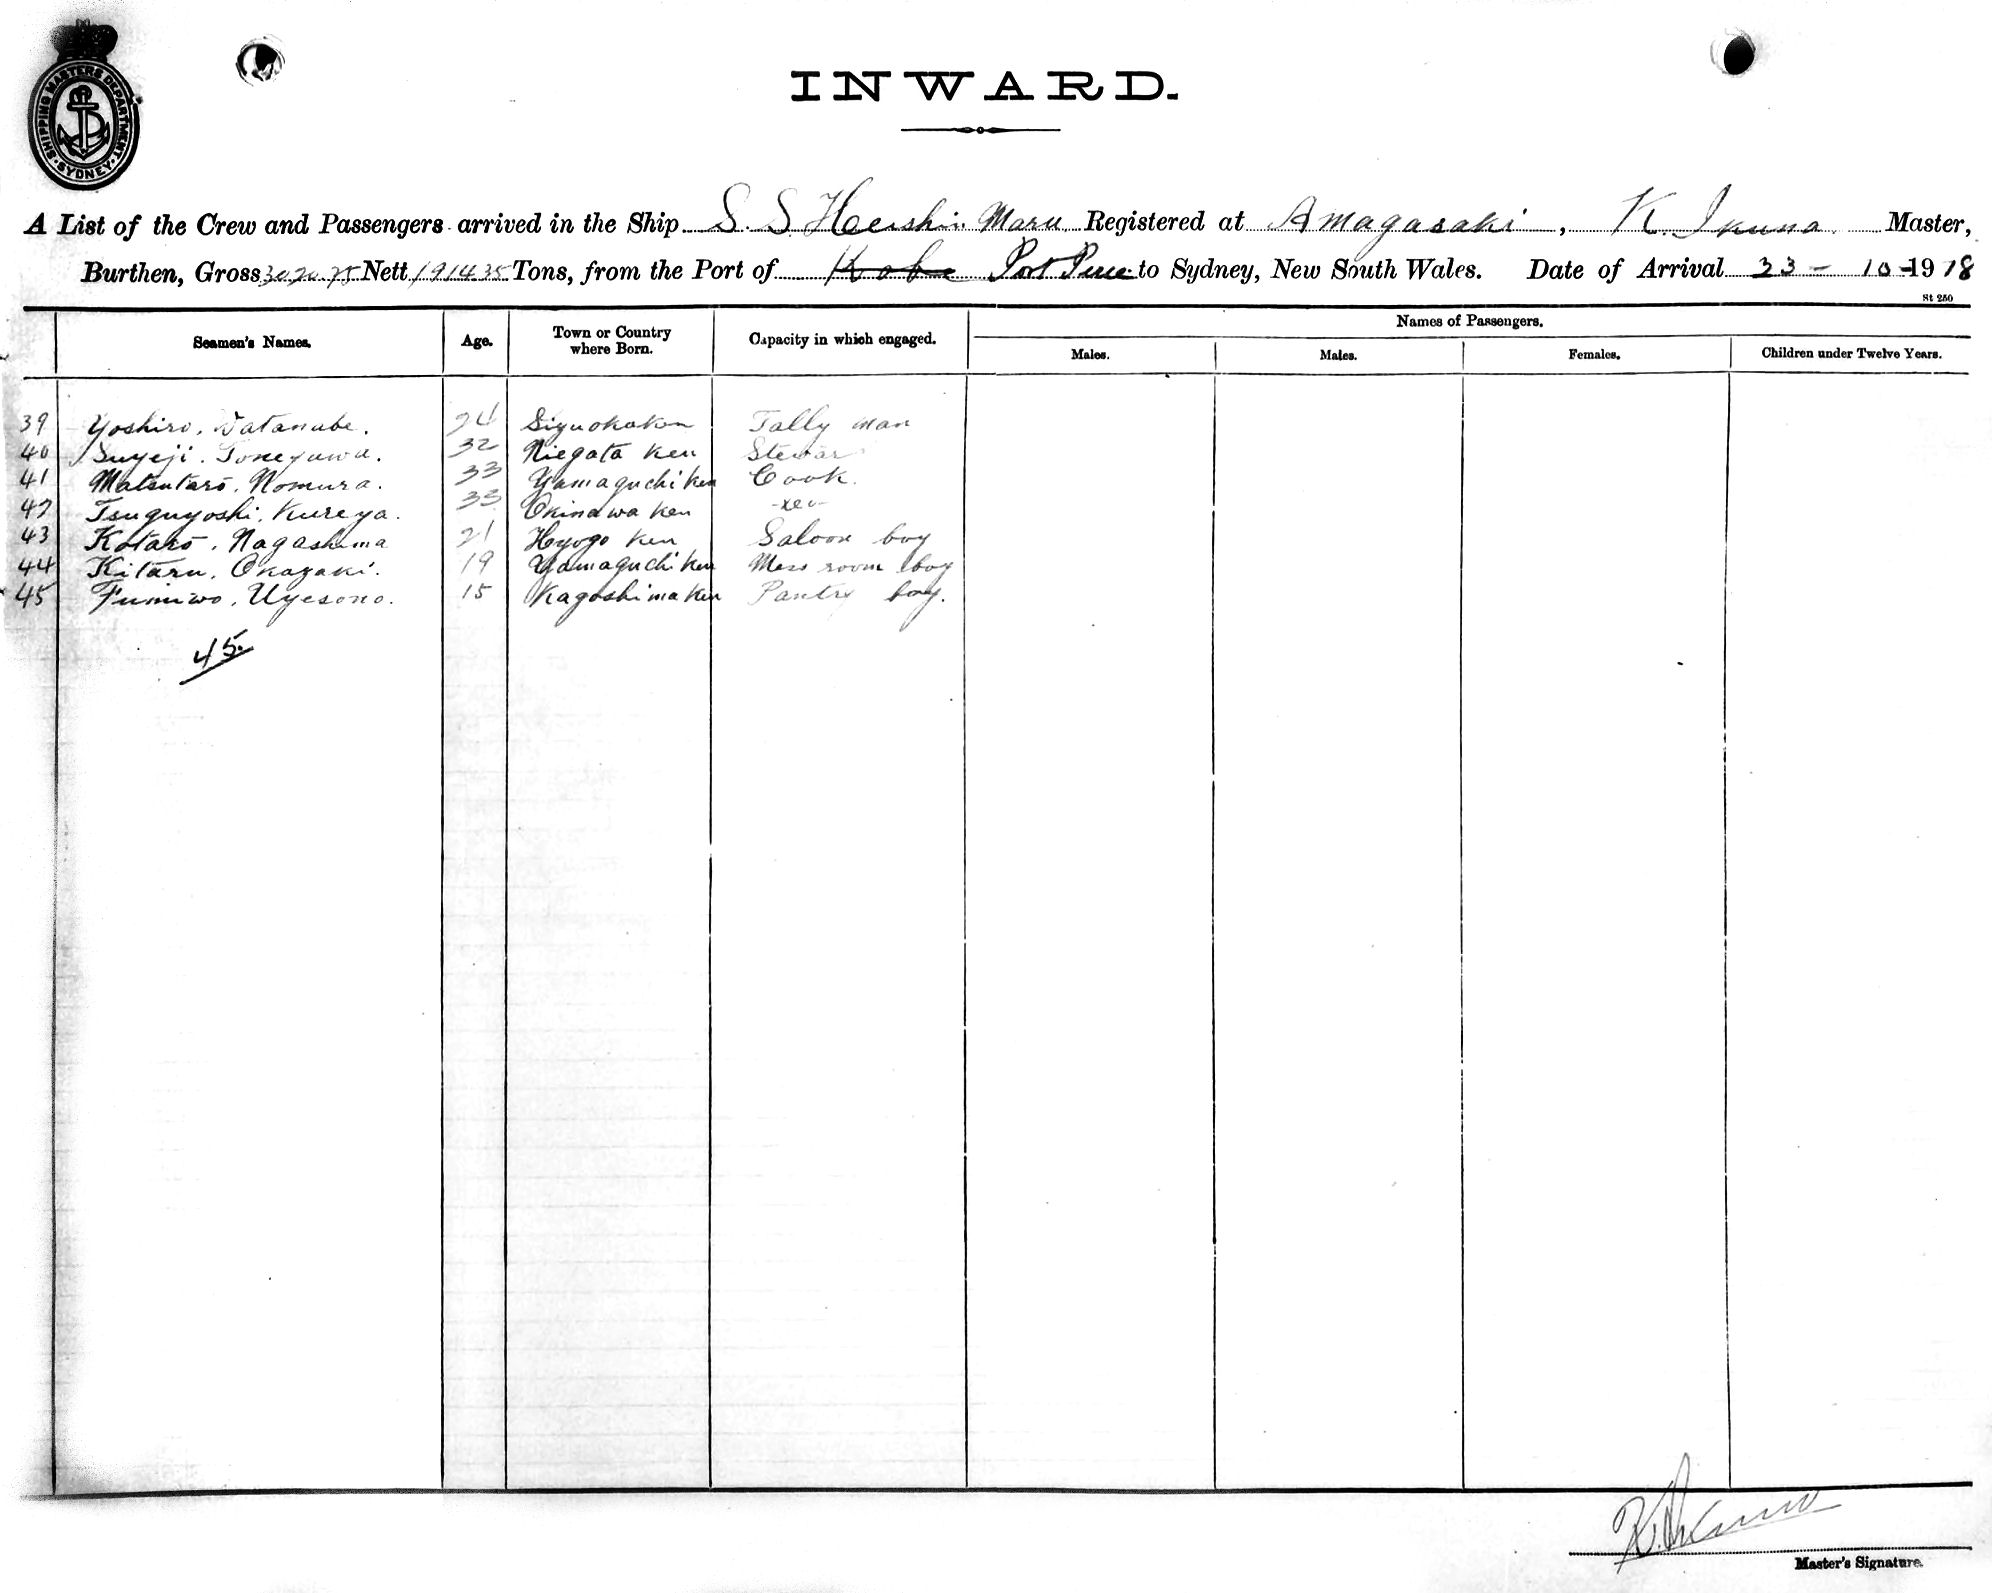 SHIPPING MASTERS DEPARTMENT. SYDNEY
INWARD.
A List of the Crew and Passengers arrived in the Ship S. S. Heishin Maru Registered at Amagasaki, K. Ikuna Master,
Burthen, Gross 3020.75 Nett 1914.35 Tons, from the Port of Kobe Port Pirie to Sydney, New South Wales. Date of Arrival 23 - 10 - 1918
St 250
Seamen's Names. Age. Town or Country where Born. Capacity in which engaged. Names of Passengers.
Males. Males. Females. Children under Twelve Years.
39 Yoshiro. Watanabe. 24 Siguokaken Tally man
40 Suyeji. Toneyawa. 32 Niegata Ken Steward
41 Matsutaro. Nomura. 33 Yamaguchi Ken Cook.
42 Tsuguyoshi. Kureya. 33 Okinawa Ken
43 Kotaro. Nagashima 21 Hyogo Ken Saloon boy
44 Kitaru. Okazaki. 19 Yamaguchi Ken Mess room boy
45 Fumiwo. Uyesono. 15 Kagoshima Ken Pantry boy.
45.
K. Ikuna
Master's Signature.